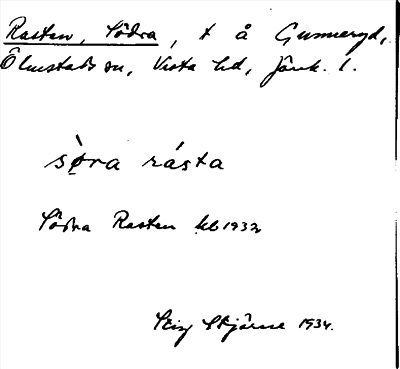 Rasten, Södra, t å Gunneryd,
Ölmstads sn, Vista hd, Jönk. l.
sò̀ra rásta
Södra Rasten kb 1932
Stig Stjärne 1934.